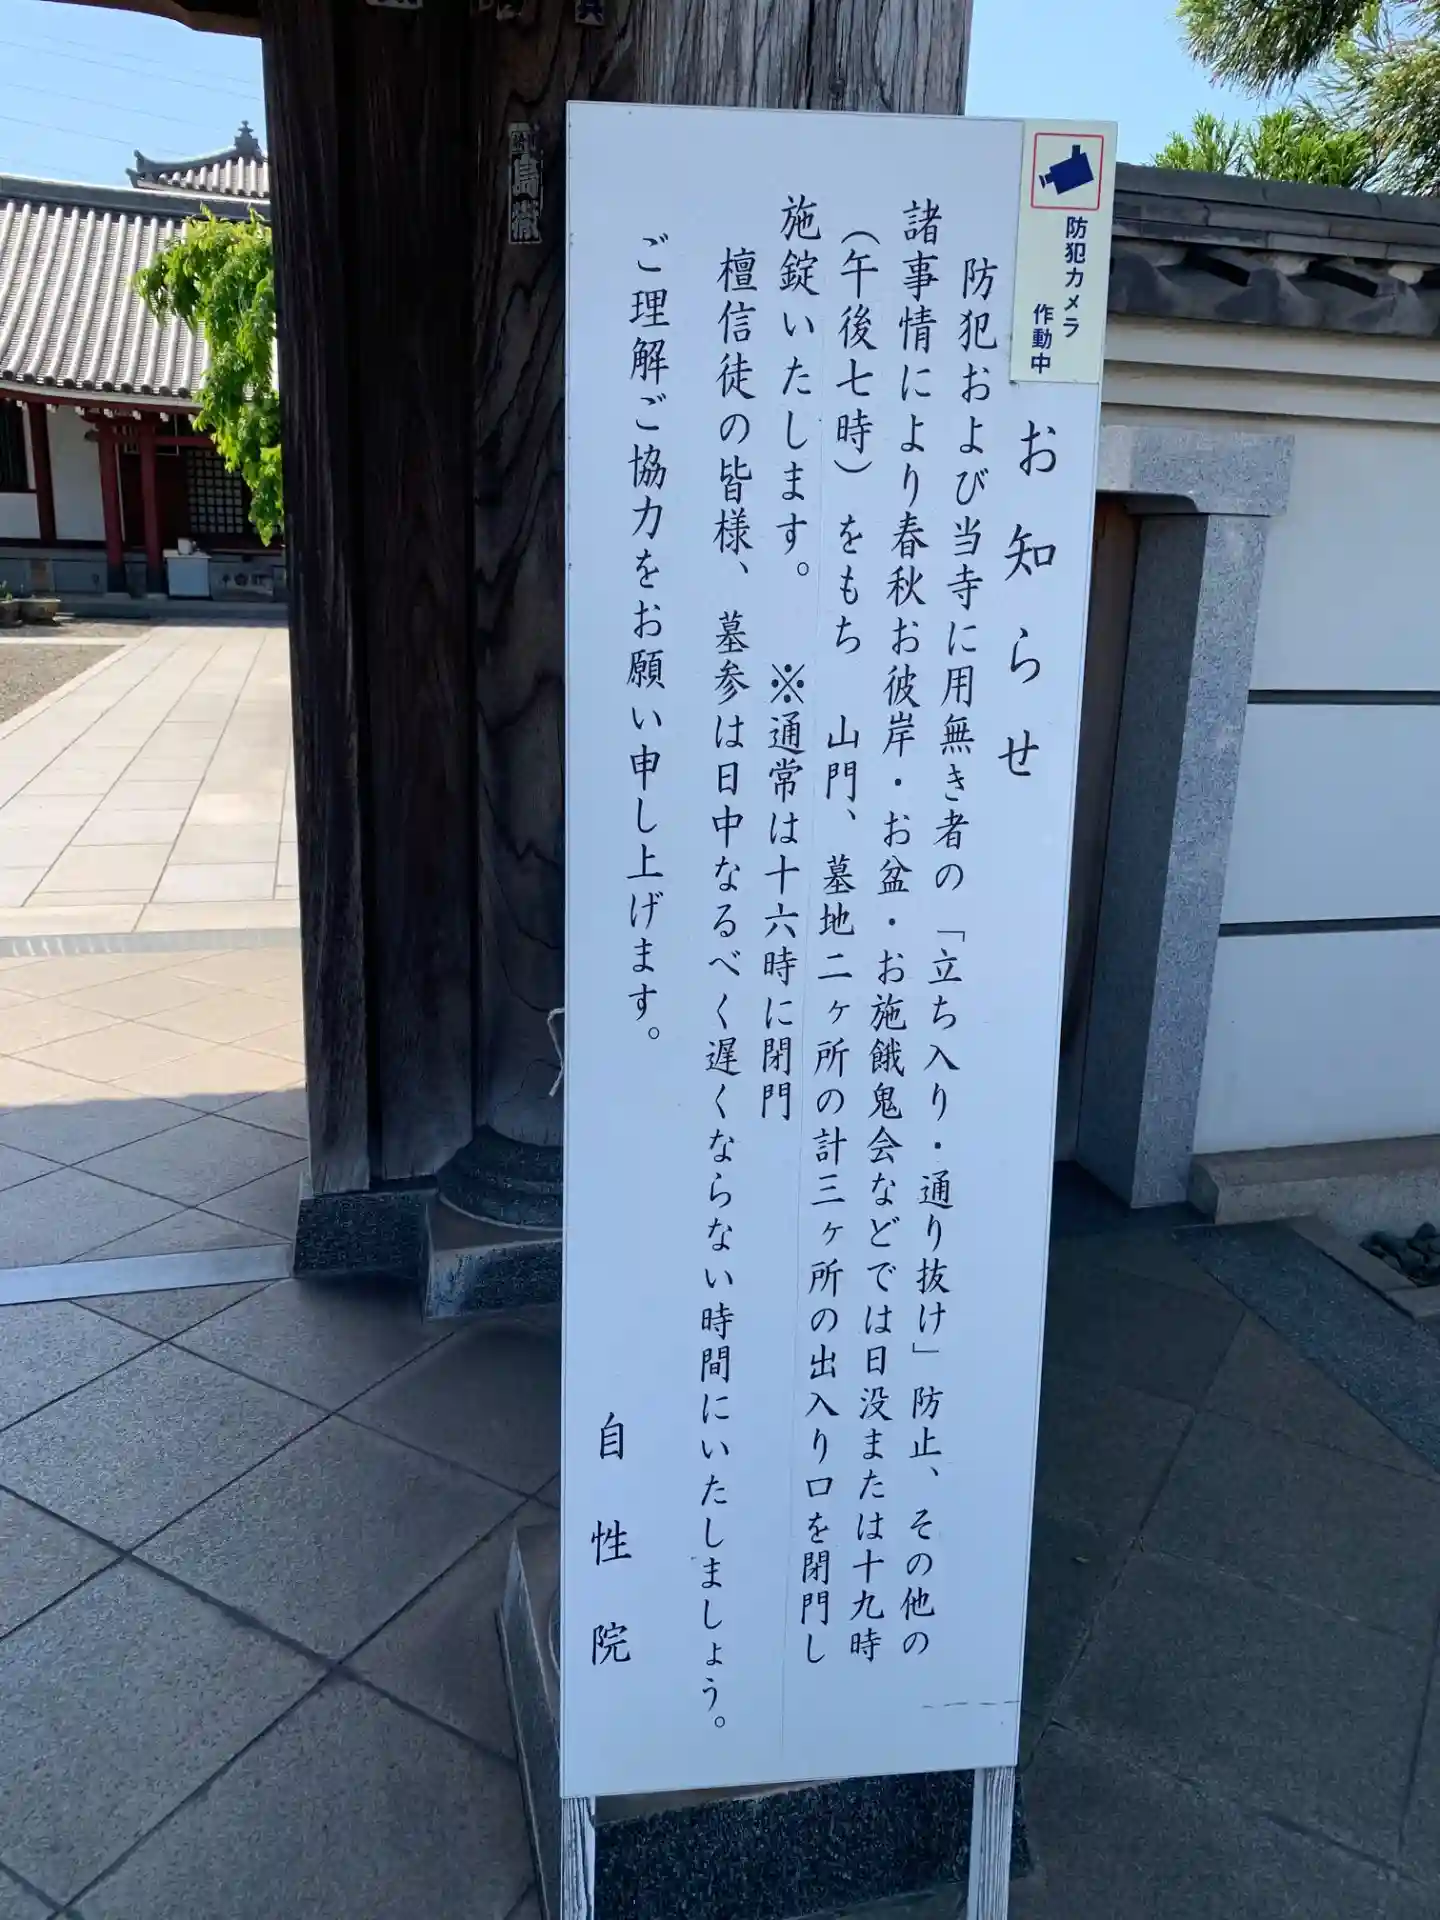 防犯カメラ
作動中
お知らせ
防犯および当寺に用無き者の「立ち入り・通り抜け」防止、その他の
諸事情により春秋お彼岸・お盆・お施餓鬼会などでは日没または十九時
（午後七時）をもち 山門、墓地二ヶ所の計三ヶ所の出入り口を閉門し
施錠いたします。 ※通常は十六時に閉門
檀信徒の皆様、墓参は日中なるべく遅くならない時間にいたしましょう。
ご理解ご協力をお願い申し上げます。
自性院